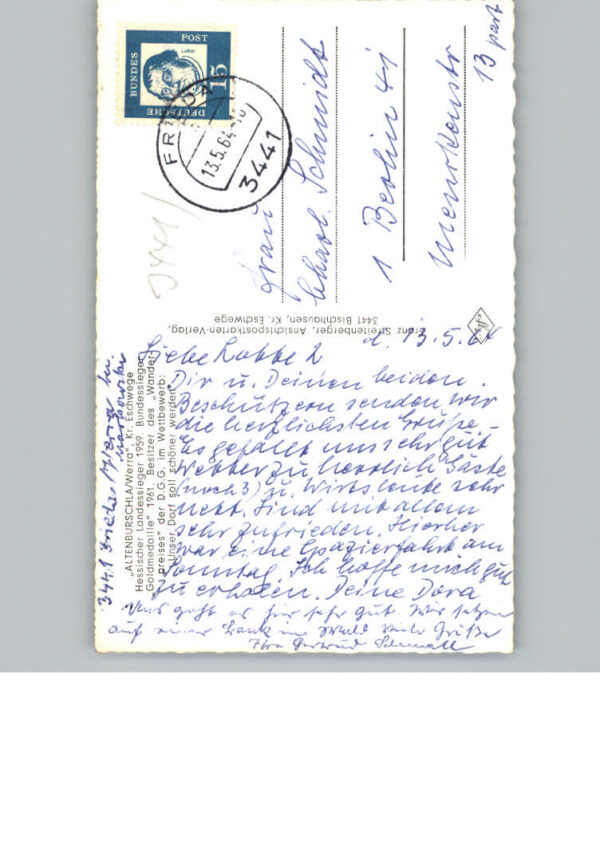 DEUTSCHE
BUNDES
POST
15
Luther
FRIEDA
13.5.64
3441
3441
Frau
Charl. Schmidt
1 Berlin 41
13 part
Franz Streitenberger, Ansichtspostkarten-Verlag,
3441 Bischhausen, Kr. Eschwege
„ALTENBURSCHLA/Werra", Kr. Eschwege
Hessischer Landessieger 1959. Bundessieger
„Goldmedaille" 1961. Besitzer des „Wander-
preises" der D.G.G. im Wettbewerb:
„Unser Dorf soll schöner werden"
3441 Frieda
d. 13.5.64
Liebe
Dir u. Deinen beiden
Beschützern senden wir
die herzlichsten Grüße –
Es gefällt uns sehr gut
Wetter zu herrlich Gäste
(noch 3) u. Wirtsleute sehr
nett. Sind mit allem
sehr zufrieden. Hierher
war eine Spazierfahrt am
Sonntag. Ich hoffe mich gut
zu erholen. Deine Dora
Uns geht es hier sehr gut. Wir sitzen
auf einer Bank im Wald Viele Grüße
Ihre Gertrud